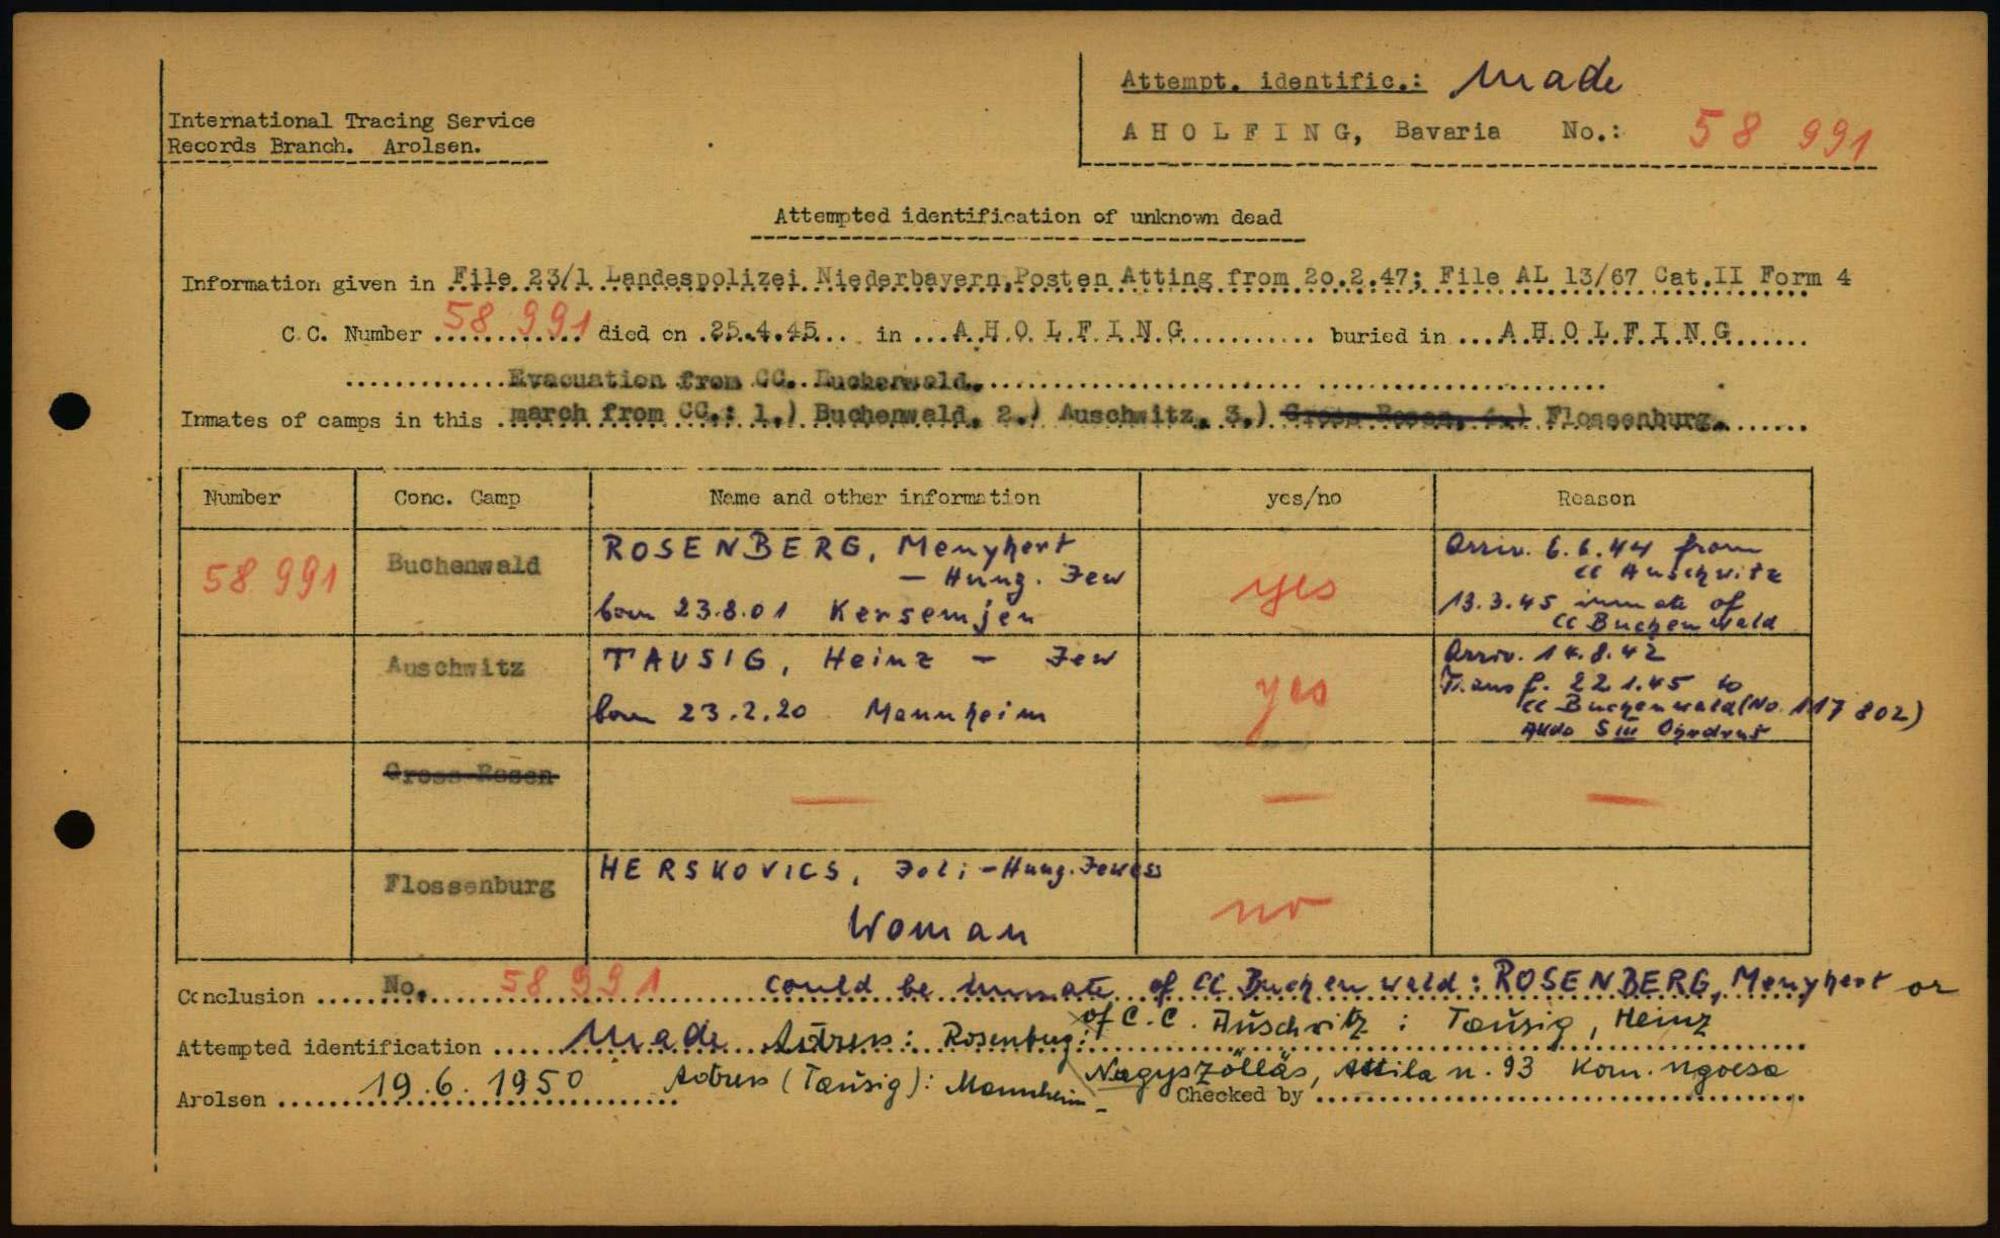 International Tracing Service
Records Branch. Arolsen.
Attempt. identific.: Made
A H O L F I N G, Bavaria No.: 58 991
Attempted identification of unknown dead
Information given in File 23/1 Landespolizei Niederbayern, Posten Atting from 2o.2.47; File AL 13/67 Cat.II Form 4
C.C. Number 58 991 died on 25.4.45 in A H O L F I N G buried in A H O L F I N G
Evacuation from CC. Buchenwald.
Inmates of camps in this march from CC.: 1.) Buchenwald, 2.) Auschwitz, 3.) Gross Rosen, 4.) Flossenburg.
Number Conc. Camp Name and other information yes/no Reason
58 991 Buchenwald ROSENBERG, Menyhert yes Arriv. 6.6.44 from
— Hung. Jew CC Auschwitz
born 23.8.01 Kersemjen 13.3.45 inmate of
CC Buchenwald
Auschwitz TAUSIG, Heinz — Jew yes Arriv. 14.8.42
born 23.2.20 Mannheim Transf. 22 1.45 to
CC Buchenwald (No. 117 802)
Akdo S III Ohrdruf
Gross Rosen — — —
Flossenburg HERSKOVICS, Joli - Hung. Jewess no
Woman
Conclusion No. 58 991 could be inmate of CC Buchenwald: ROSENBERG, Menyhert or
of C.C. Auschwitz: Tausig, Heinz
Attempted identification Made Adress: Rosenberg:
Nagyszöllås, Attila u. 93 Kom.
Arolsen 19.6.1950 Adress (Tausig): Mannheim - Checked by